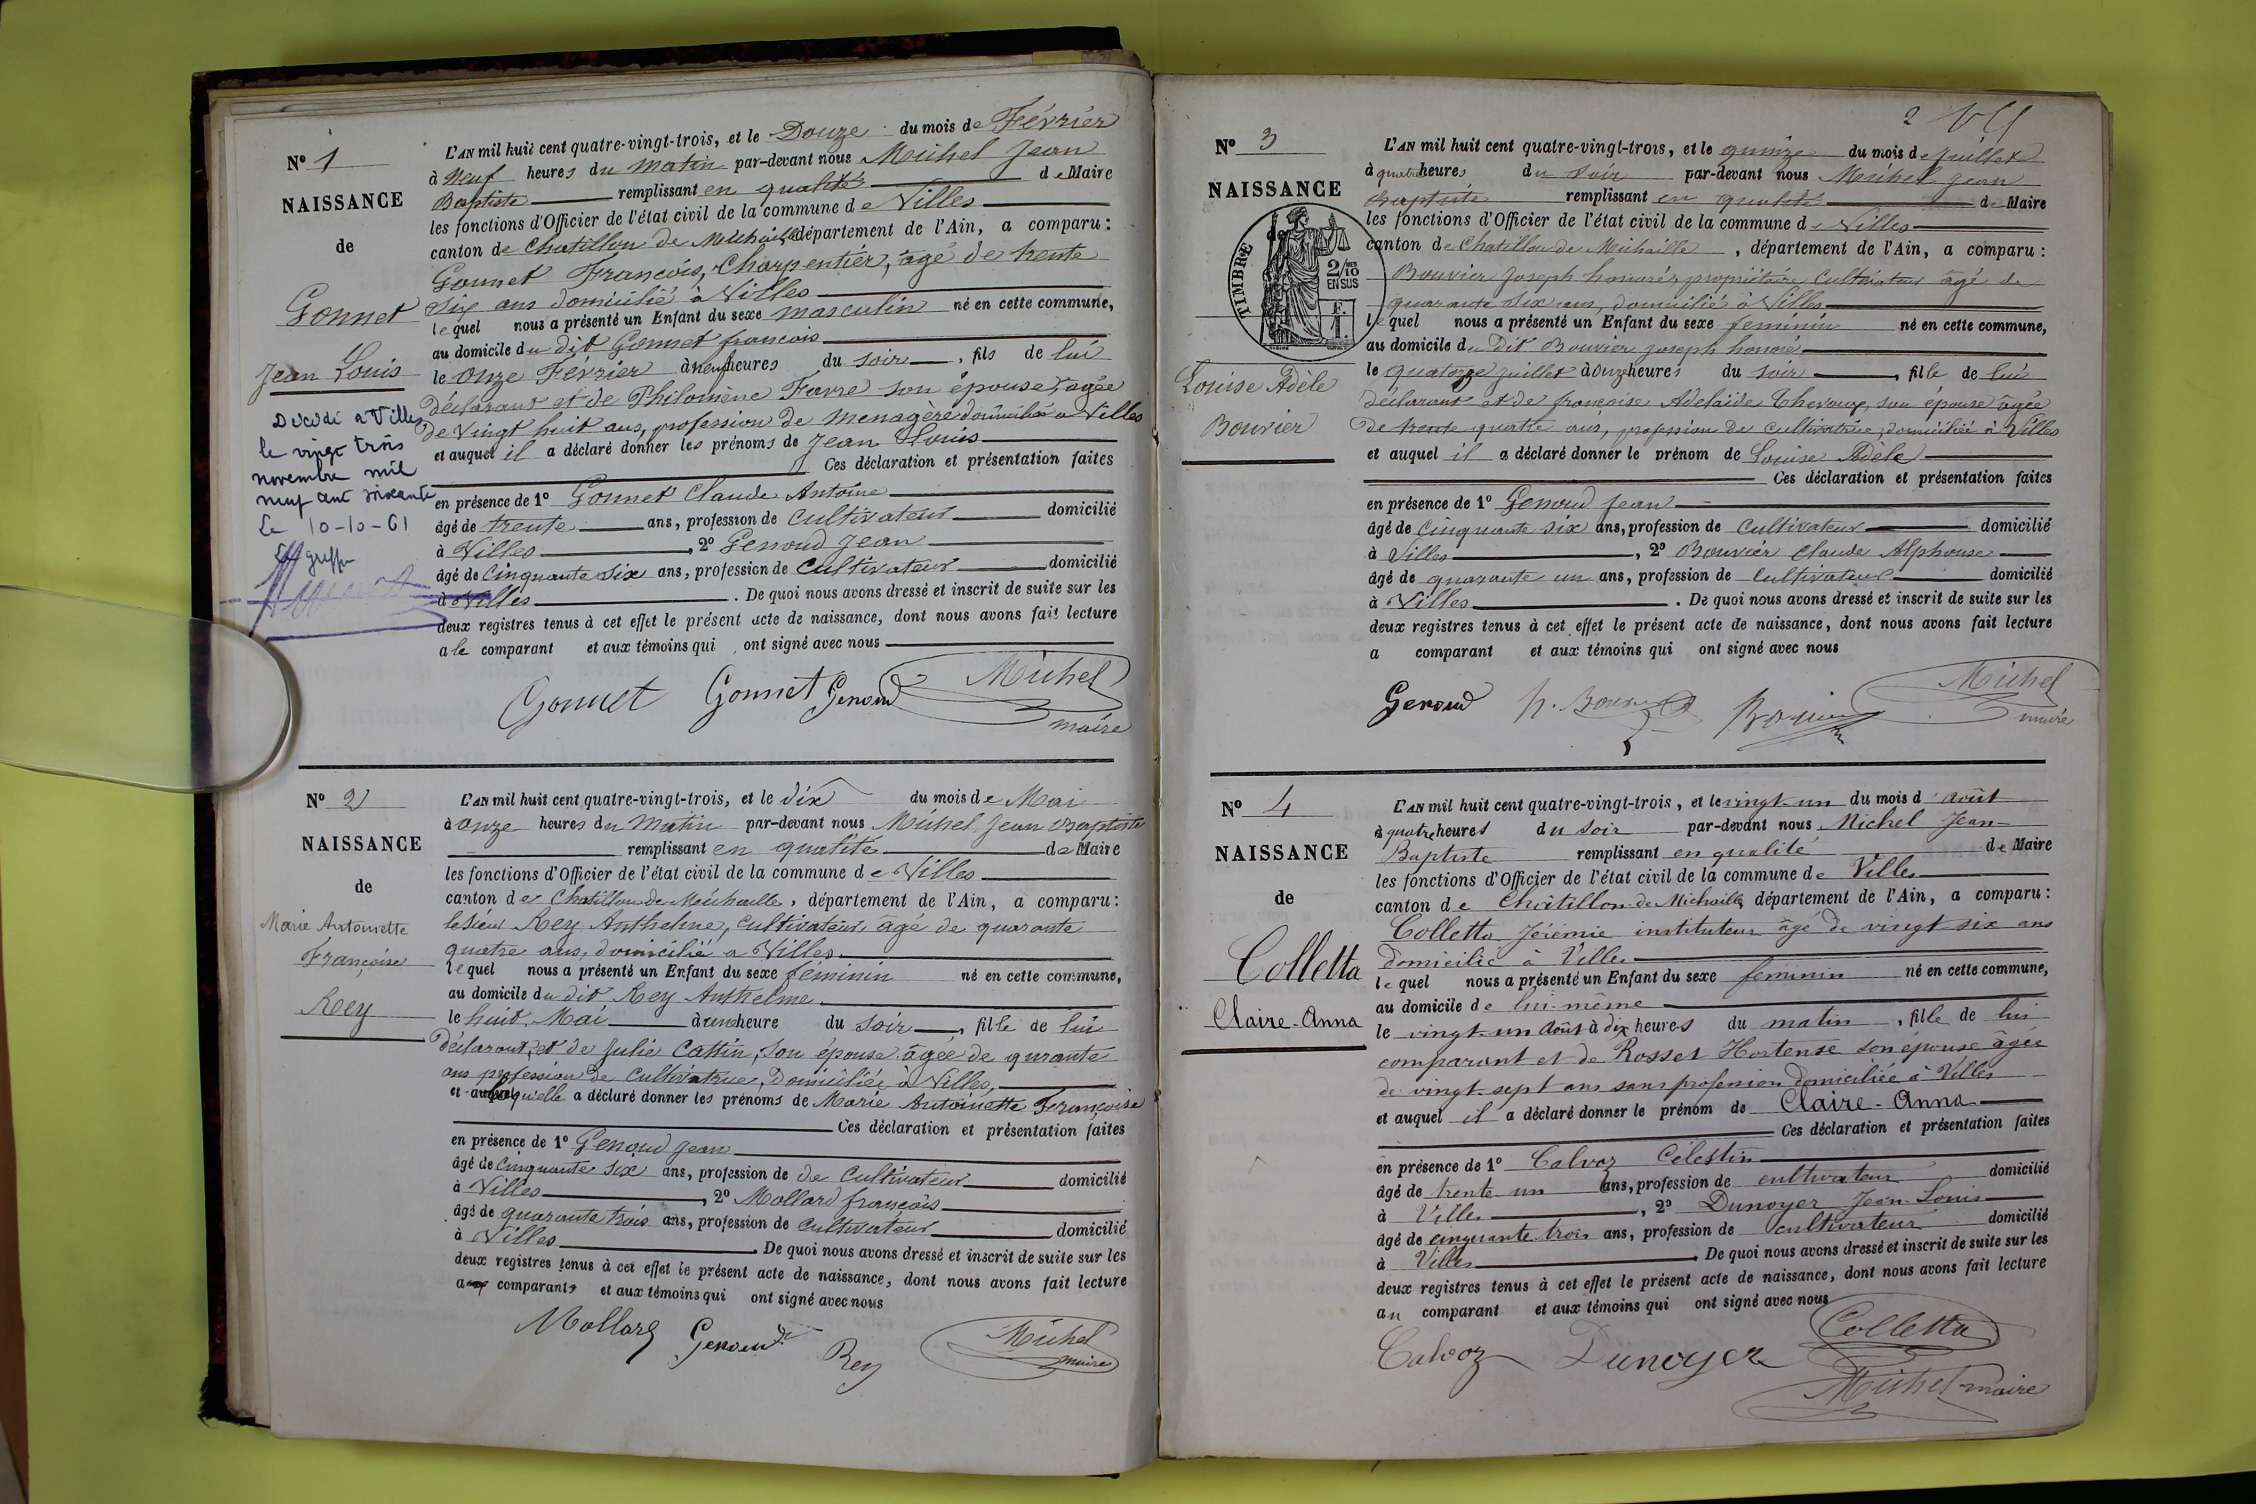 Nº 1
NAISSANCE
de
Gonnet
Jean Louis
Décédé à Villes
le vingt trois
novembre mil
neuf cent soixante
Le 10-10-61
L'AN mil huit cent quatre-vingt-trois, et le Douze du mois de Février
à Neuf heures du Matin par-devant nous Michel Jean
Baptiste remplissant en qualité de Maire
les fonctions d'Officier de l'état civil de la commune de Villes
canton de Chatillon de Michaille département de l'Ain, a comparu :
Gonnet François, Charpentier, âgé de trente
six ans domicilié à Villes
lequel nous a présenté un Enfant du sexe masculin né en cette commune,
au domicile du dit Gonnet françois
le Onze Février à neuf heures du soir, fils de lui
déclarant et de Philomène Favre son épouse, agée
de Vingt huit ans, profession de Menagère domiciliée à Villes
et auquel il a déclaré donner les prénoms de Jean Louis
Ces déclaration et présentation faites
en présence de 1º Gonnet Claude Antoine
âgé de trente ans, profession de Cultivateur domicilié
à Villes, 2º Genoud Jean
âgé de Cinquante six ans, profession de Cultivateur domicilié
à Villes. De quoi nous avons dressé et inscrit de suite sur les
deux registres tenus à cet effet le présent acte de naissance, dont nous avons fait lecture
a le comparant et aux témoins qui ont signé avec nous
Gonnet Gonnet Genoud Michel
maire
Nº 2
NAISSANCE
de
Marie Antoinette
Françoise
Rey
L'AN mil huit cent quatre-vingt-trois, et le dix du mois de Mai
à Onze heures du Matin par-devant nous Michel Jean Baptiste
remplissant en qualité de Maire
les fonctions d'Officier de l'état civil de la commune de Villes
canton de Chatillon de Michaille, département de l'Ain, a comparu :
le sieur Rey Anthelme, cultivateur âgé de quarante
quatre ans, domicilié a Villes
lequel nous a présenté un Enfant du sexe féminin né en cette commune,
au domicile du dit Rey Anthelme
le huit Mai à une heure du soir, fille de lui
Déclarant, et de Julie Cattin, son épouse âgée de quarante
ans profession de Cultivatrice, domiciliée à Villes,
et a déclaré donner les prénoms de Marie Antoinette Françoise
Ces déclaration et présentation faites
en présence de 1º Genoud Jean
âgé de Cinquante six ans, profession de de Cultivateur domicilié
à Villes, 2º Mollard françois
âgé de quarante trois ans, profession de Cultivateur domicilié
à Villes. De quoi nous avons dressé et inscrit de suite sur les
deux registres tenus à cet effet le présent acte de naissance, dont nous avons fait lecture
comparant et aux témoins qui ont signé avec nous
Mollard Genoud Rey Michel
maire
2
Nº 3
NAISSANCE
de
TIMBRE
2/10
EN SUS
Louise Adèle
Bouvier
L'AN mil huit cent quatre-vingt-trois, et le quinze du mois de Juillet
à quatre heures du soir par-devant nous Michel Jean
Baptiste remplissant en qualité de Maire
les fonctions d'Officier de l'état civil de la commune de Villes
canton de Chatillon de Michaille, département de l'Ain, a comparu :
Bouvier Joseph honoré, propriétaire Cultivateur âgé de
quarante six ans, domicilié à Villes
lequel nous a présenté un Enfant du sexe feminin né en cette commune,
au domicile du Dit Bouvier Joseph honoré
le quatorze juillet à onze heures du soir, fille de lui
déclarant et de françoise Adelaïde son épouse âgée
de trente quatre ans, profession de Cultivatrice, domiciliée à Villes
et auquel il a déclaré donner le prénom de Louise Adèle
Ces déclaration et présentation faites
en présence de 1º Genoud Jean
âgé de Cinquante six ans, profession de Cultivateur domicilié
à Villes, 2º Bouvier Claude Alphonse
âgé de quarante un ans, profession de Cultivateur domicilié
à Villes. De quoi nous avons dressé et inscrit de suite sur les
deux registres tenus à cet effet le présent acte de naissance, dont nous avons fait lecture
a comparant et aux témoins qui ont signé avec nous
Genoud h. Bouvier Bouvier Michel
maire
Nº 4
NAISSANCE
de
Colletta
Claire-Anna
L'AN mil huit cent quatre-vingt-trois, et le vingt-un du mois d'août
à quatre heures du soir par-devant nous Michel Jean-
Baptiste remplissant en qualité de Maire
les fonctions d'Officier de l'état civil de la commune de Villes
canton de Châtillon-de-Michaille, département de l'Ain, a comparu :
Colletta Jérémie instituteur âgé de vingt six ans
domicilié à Villes
lequel nous a présenté un Enfant du sexe feminin né en cette commune,
au domicile de lui-même
le vingt-un Août à dix heures du matin, fille de lui
comparant et de Rosset Hortense son épouse âgée
de vingt-sept ans sans profession domiciliée à Villes
et auquel il a déclaré donner le prénom de Claire-Anna
Ces déclaration et présentation faites
en présence de 1º Calvoz Célestin
âgé de trente un ans, profession de cultivateur domicilié
à Villes, 2º Dunoyer Jean-Louis
âgé de cinquante trois ans, profession de cultivateur domicilié
à Villes. De quoi nous avons dressé et inscrit de suite sur les
deux registres tenus à cet effet le présent acte de naissance, dont nous avons fait lecture
au comparant et aux témoins qui ont signé avec nous
Colletta
Calvoz Dunoyer
Michel maire